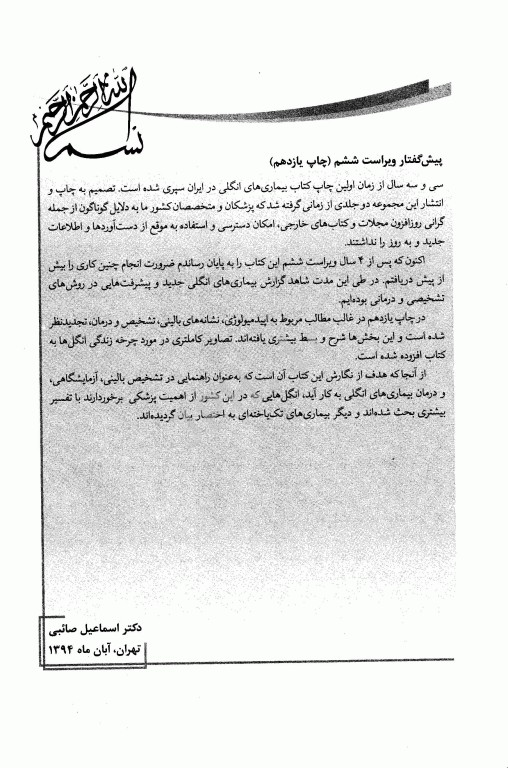 بسم الله الرحمن الرحیم
پیش‌گفتار ویراست ششم (چاپ یازدهم)
سی و سه سال از زمان اولین چاپ کتاب بیماری‌های انگلی در ایران سپری شده است. تصمیم به چاپ و
انتشار این مجموعه دو جلدی از زمانی گرفته شد که پزشکان و متخصصان کشور ما به دلایل گوناگون از جمله
گرانی روزافزون مجلات و کتاب‌های خارجی، امکان دسترسی و استفاده به موقع از دست‌آوردها و اطلاعات
جدید و به روز را نداشتند.
اکنون که پس از ۴ سال ویراست ششم این کتاب را به پایان رساندم ضرورت انجام چنین کاری را بیش
از پیش دریافتم. در طی این مدت شاهد گزارش بیماری‌های انگلی جدید و پیشرفت‌هایی در روش‌های
تشخیصی و درمانی بوده‌ایم.
در چاپ یازدهم در غالب مطالب مربوط به اپیدمیولوژی، نشانه‌های بالینی، تشخیص و درمان، تجدیدنظر
شده است و این بخش‌ها شرح و بسط بیشتری یافته‌اند. تصاویر کاملتری در مورد چرخه زندگی انگل‌ها به
کتاب افزوده شده است.
از آنجا که هدف از نگارش این کتاب آن است که به‌عنوان راهنمایی در تشخیص بالینی، آزمایشگاهی،
و درمان بیماری‌های انگلی به کار آید، انگل‌هایی که در این کشور از اهمیت پزشکی برخوردارند با تفسیر
بیشتری بحث شده‌اند و دیگر بیماری‌های تک‌یاخته‌ای به اختصار بیان گردیده‌اند.
دکتر اسماعیل صائبی
تهران، آبان ماه ۱۳۹۴